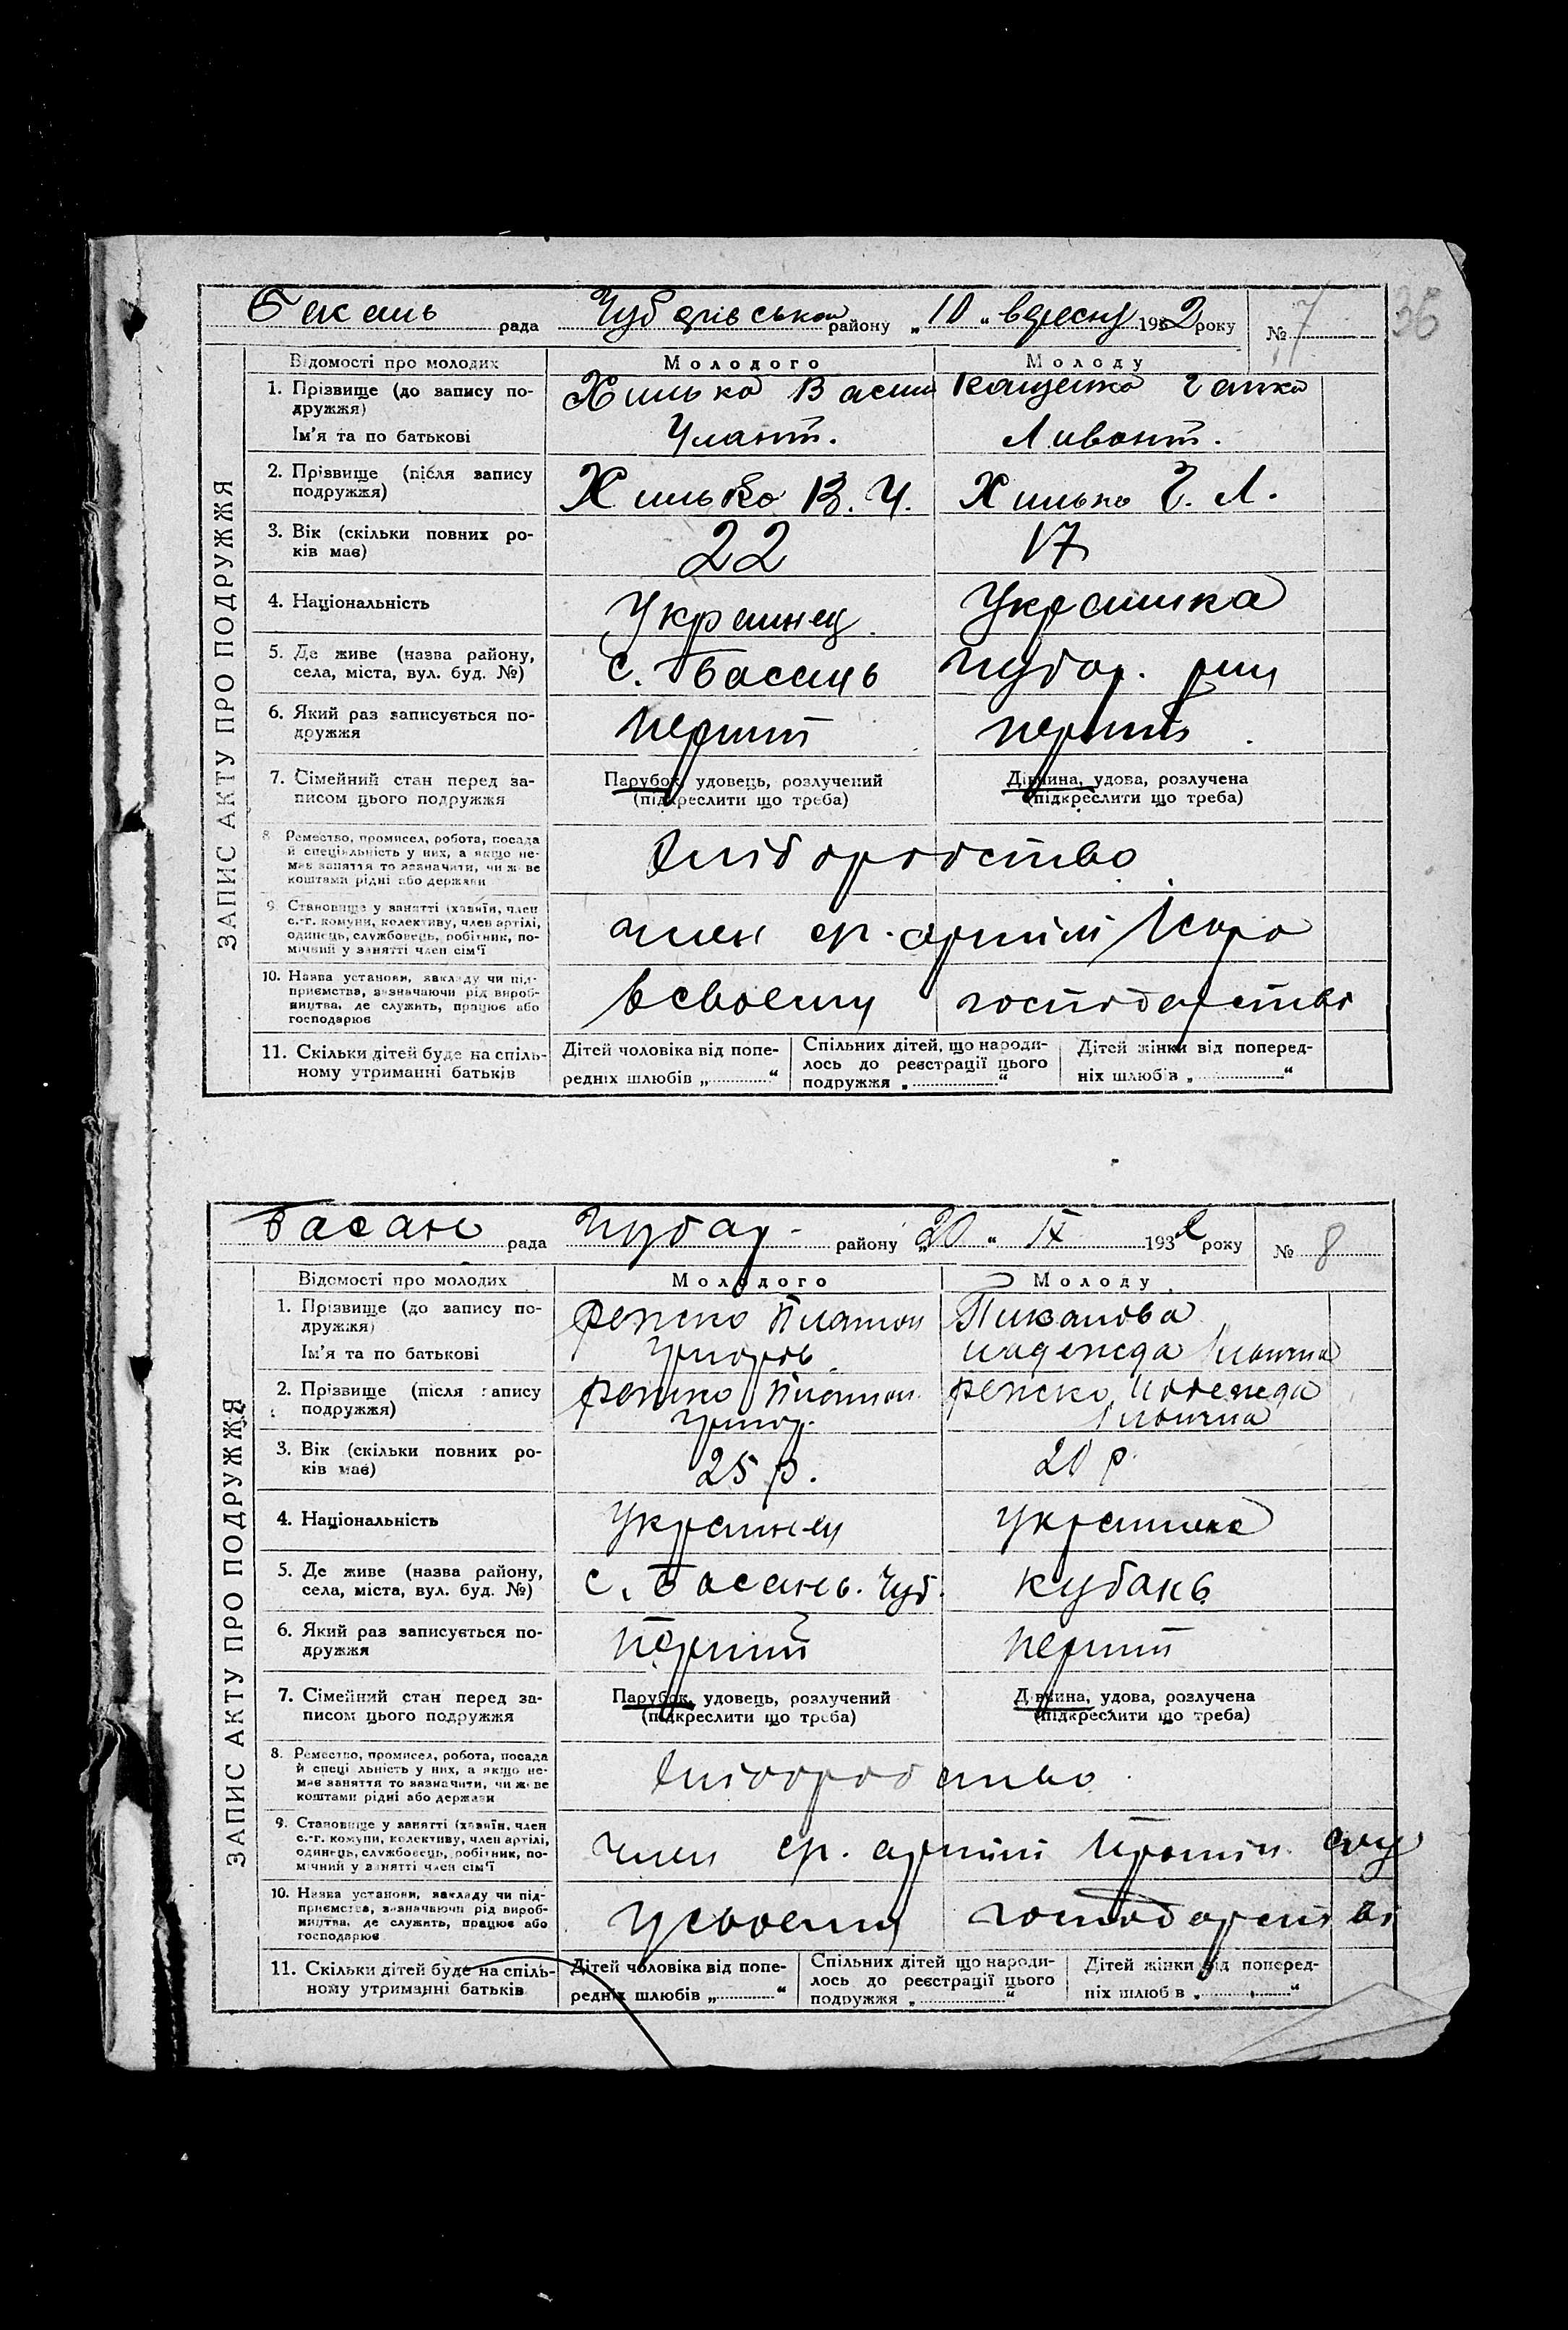 Басань рада Чубарівськ району „10“ вересну 1932 року № 7
36
ЗАПИС АКТУ ПРО ПОДРУЖЖЯ
Відомості про молодих Молодого Молоду
1. Прізвище (до запису по-
дружжя)
Хилько Васил Кащенко Ганка
Ім'я та по батькові
Ливонт.
2. Прізвище (після запису
подружжя)
Хилько В. У. Хилько Г. Л.
3. Вік (скільки повних ро-
ків має)
22 17
4. Національність
Украинец Украинка
5. Де живе (назва району,
села, міста, вул. буд. №)
с. Басань Чубар. рну
6. Який раз записується по-
дружжя
перший перший
7. Сімейний стан перед за-
писом цього подружжя
Парубок, удовець, розлучений
(підкреслити що треба)
Дівчина, удова, розлучена
(підкреслити що треба)
8. Ремество, промисел, робота, посада
й спеціяльність у них, а якщо не-
має заняття то зазначати, чи живе
коштами рідні або держави
хліборобство
9. Становище у занятті (хазяїн, член
с.-г. комуни, колективу, член артілі,
одинець, службовець, робітник, по-
мічний у занятті член сім'ї
член ср. артілі
10. Назва установи, закладу чи під-
приємства, зазначаючи рід вироб-
ництва, де служить, працює або
господарює
в своему господарстві
11. Скільки дітей буде на спіль-
ному утриманні батьків
Дітей чоловіка від попе-
редніх шлюбів „..........“
Спільних дітей, що народи-
лось до реєстрації цього
подружжя „..........“
Дітей жінки від поперед-
ніх шлюбів „..........“
Басань рада Чубар- району „20“ IX 1932 року № 8
ЗАПИС АКТУ ПРО ПОДРУЖЖЯ
Відомості про молодих Молодого Молоду
1. Прізвище (до запису по-
дружжя)
Репско Платон Пиканова
Ім'я та по батькові
Григоров. Надежда
2. Прізвище (після запису
подружжя)
Репско Платон Репско Надежда
Григор.
3. Вік (скільки повних ро-
ків має)
25 р. 20 р.
4. Національність
Украинец Украинка
5. Де живе (назва району,
села, міста, вул. буд. №)
с. Басань. Чуб. Кубань
6. Який раз записується по-
дружжя
перший перший
7. Сімейний стан перед за-
писом цього подружжя
Парубок, удовець, розлучений
(підкреслити що треба)
Дівчина, удова, розлучена
(підкреслити що треба)
8. Ремество, промисел, робота, посада
й спеціяльність у них, а якщо не-
має заняття то зазначати, чи живе
коштами рідні або держави
хліборобство
9. Становище у занятті (хазяїн, член
с.-г. комуни, колективу, член артілі,
одинець, службовець, робітник, по-
мічний у занятті член сім'ї
член ср. артілі
10. Назва установи, закладу чи під-
приємства, зазначаючи рід вироб-
ництва, де служить, працює або
господарює
у своему господарстві
11. Скільки дітей буде на спіль-
ному утриманні батьків
Дітей чоловіка від попе-
редніх шлюбів „..........“
Спільних дітей що народи-
лось до реєстрації цього
подружжя „..........“
Дітей жінки від поперед-
ніх шлюбів „..........“